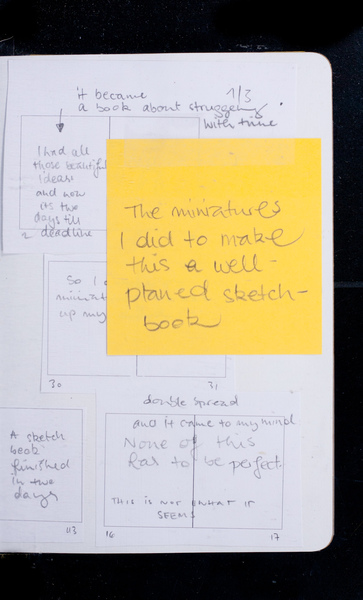 it became 1/3
a book about struggeng
with time
I had all
those beautiful
ideas
and now
its two
days till
deadline
2
The miniatures
I did to make
this a well-
planed sketch-
book
So I
miniat
up my
30 31
double spread
A sketch
book
finished
in two
days
03
and it came to my mind
None of this
has to be perfect.
THIS IS NOT WHAT IT
SEEMS
16 17